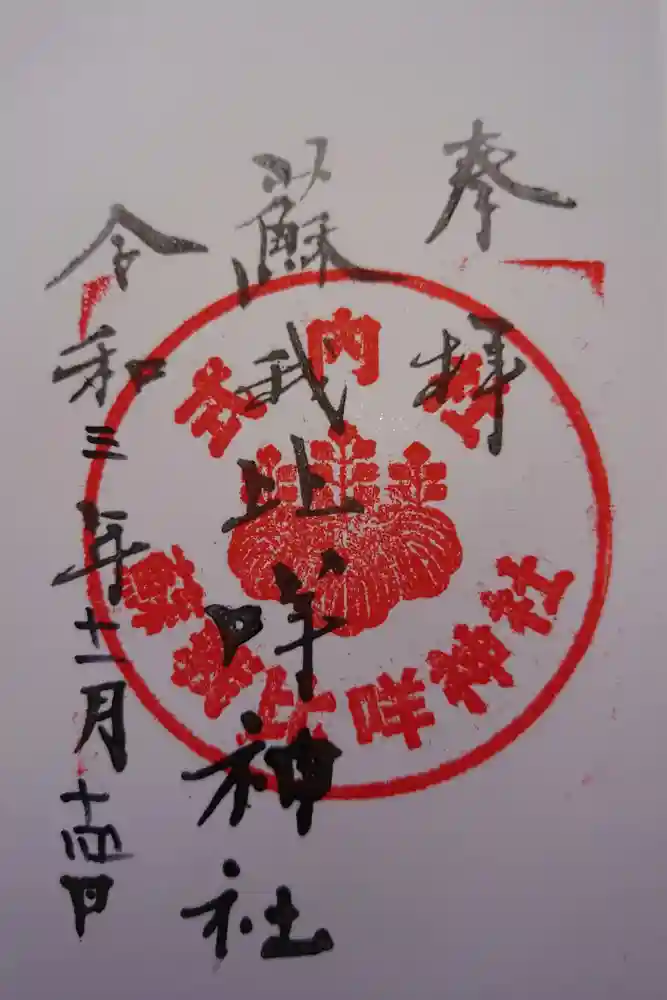 奉拝
蘇我比咩神社
令和三年十一月十四日
式内社
蘇我比咩神社